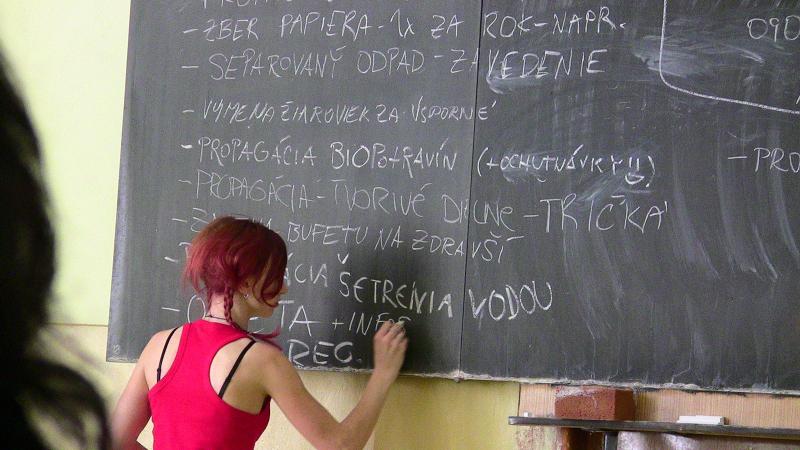 - ZBER PAPIERA - 1x ZA ROK - NAPR.
- SEPAROVANÝ ODPAD - ZAVEDENIE
- VÝMENA ŽIAROVIEK ZA ÚSPORNÉ
- PROPAGÁCIA BIOPOTRAVÍN (+OCHUTNÁVKY!!)
- PROPAGÁCIA - TVORIVÉ DIELNE - TRIČKÁ
BUFETU NA ZDRAVŠÍ
ŠETRENIA VODOU
+ INFO
REC.
090
- PRO